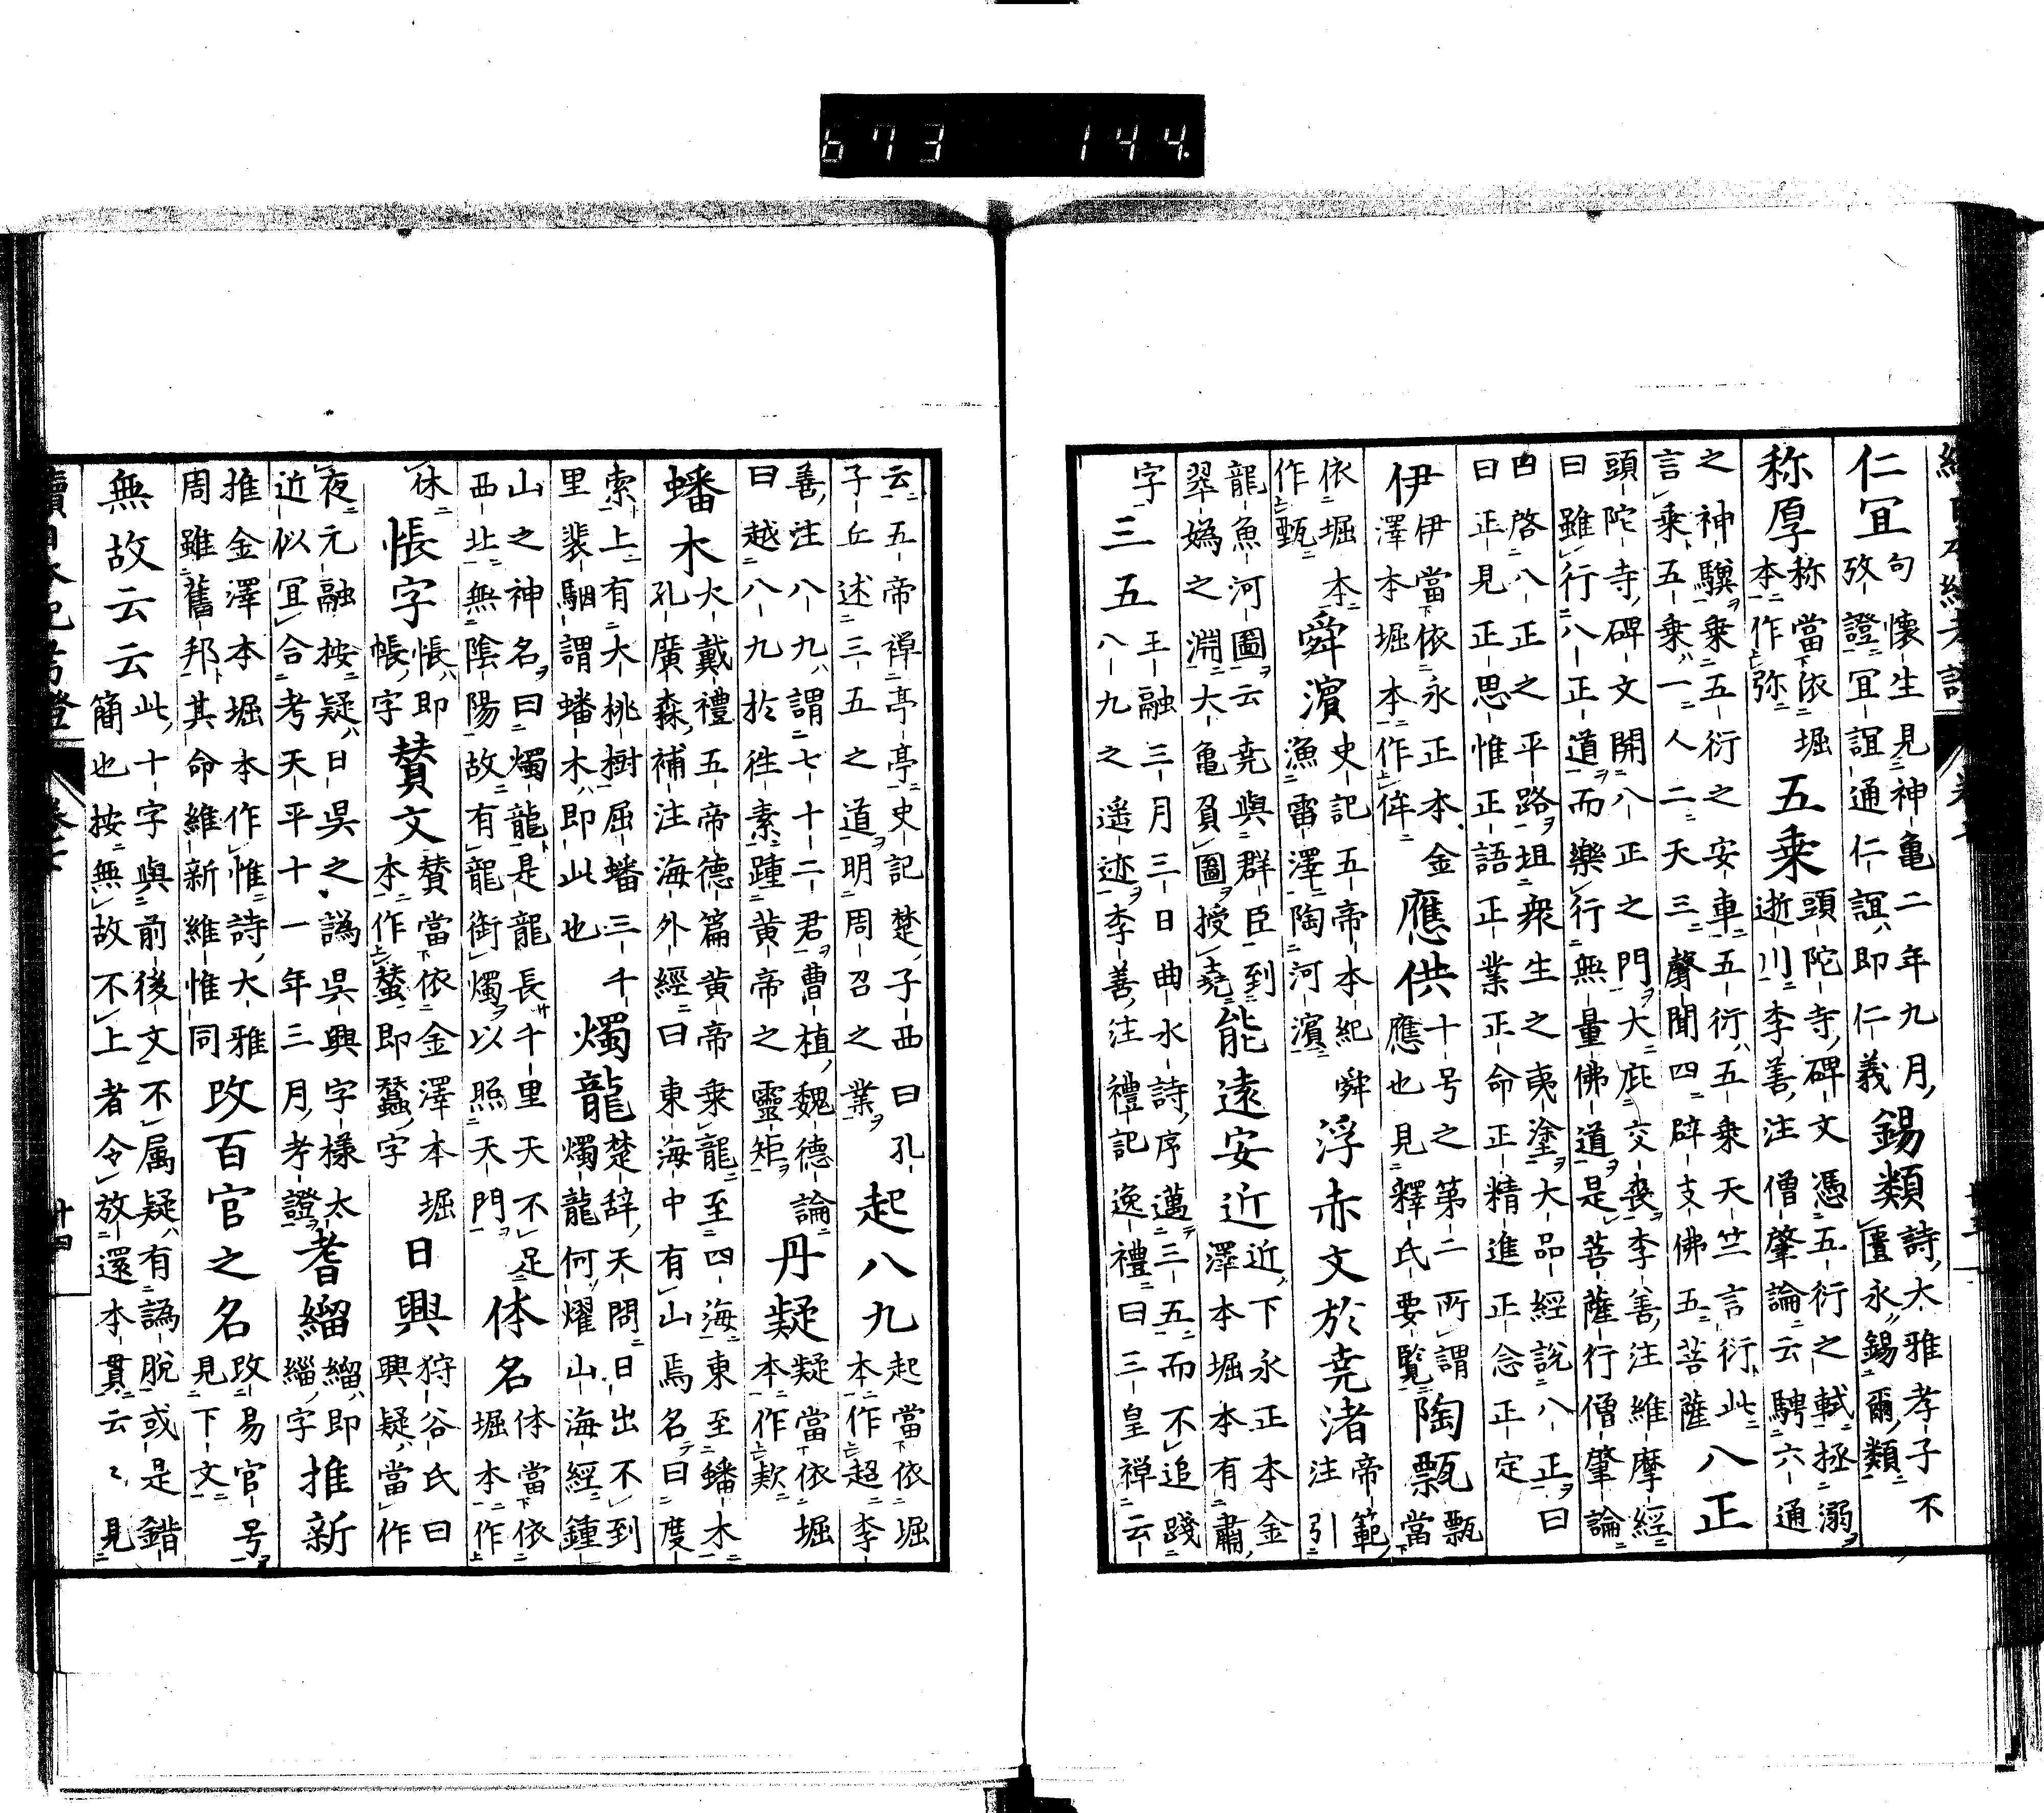 仁宜 句懷生見神亀二年九月攷證宜誼通仁誼即仁義 錫類 詩大雅孝子不匱永錫爾類
称厚 称當依堀本作弥 五乗 頭陀寺碑文憑五衍之軾拯溺逝川李善注僧肇論云騁六通
之神驥乗五衍之安車五衍五乗天竺言衍此言乗五乗一人二天三聲聞四辟支佛五菩薩 八正
頭陀寺碑文開八正之門大庇交喪李善注維摩經曰雖行八正道而樂行無量佛道是菩薩行僧肇論
曰啓八正之平路坦衆生之夷塗大品經說八正曰曰正見正思惟正語正業正命正精進正念正定
伊 伊當依永正本金澤本堀本作侔 應供 十号之第二所謂應也見釋氏要覧 陶瓢 瓢當
依堀本作甄 舜濱 史記五帝本紀舜漁雷澤陶河濱 浮赤文於尭渚 帝範注引
龍魚河圖云尭與群臣到翠嬀之淵大亀負圖授尭 能遠安近 近下永正本金澤本堀本有肅
字 三五 王融三月三日曲水詩序邁三五而不追踐八九之遥迹李善注禮記逸禮曰三皇禅云
云五帝禅亭亭史記楚子西曰孔子丘述三五之道明周召之業 起八九 起當依堀本作超李
善注八九謂七十二君曹植魏德論曰越八九於往素踵黄帝之靈矩 丹疑 疑當依堀本作款
蟠木 大戴禮五帝德篇黄帝乗龍至四海東至蟠木孔廣森補注海外經曰東海中有山焉名曰度
索上有大桃樹屈蟠三千里裴駰謂蟠木即此也 燭龍 楚辞天問日出不到燭龍何燿山海經鍾
山之神名曰燭龍是龍長千里天不足西北無陰陽故有龍銜燭以照天門 体名 体當依堀本作
休 悵字 悵即帳字 賛文 賛當依金澤本堀本作蝅即蠶字 日興 狩谷氏曰興疑當作
夜元融按疑日吳之譌吳興字様太近似宜合考天平十一年三月考證 耆緇 緇即緇字 推新
推金澤本堀本作惟詩大雅周雖舊邦其命維新維惟同 攺百官之名 攺易官号見下文
無故云云 此十字與前後文不属疑有譌脱或是錯簡也按無故不上者令放還本貫云云見
續日本紀考證 卷七 廿四